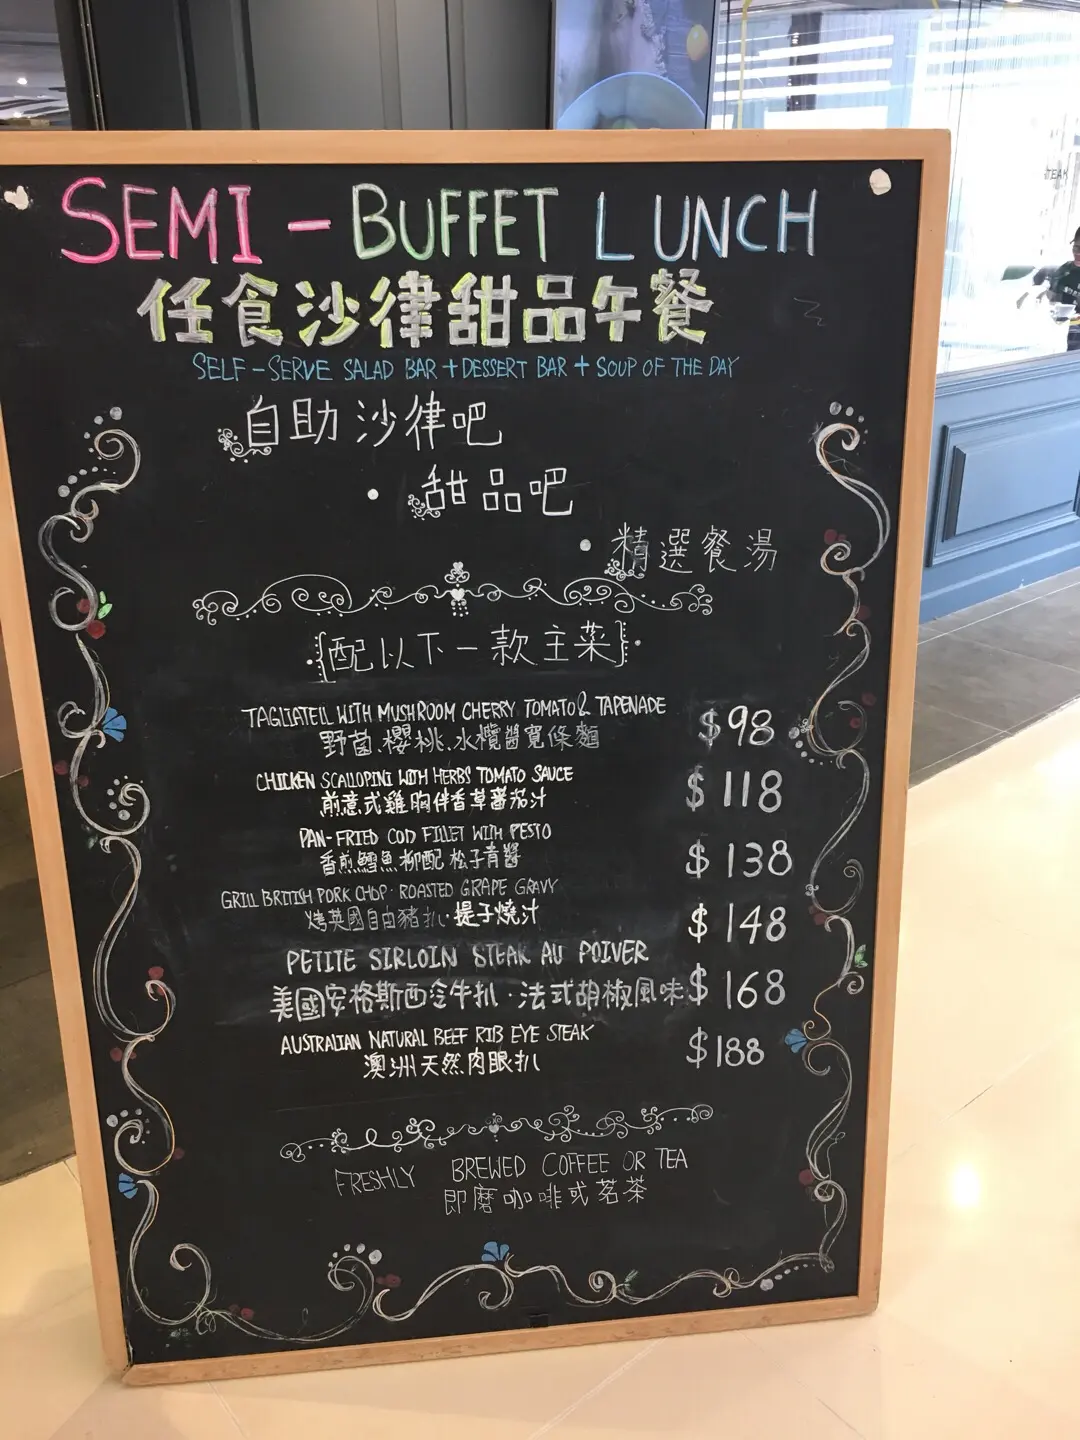 SEMI - BUFFET LUNCH
任食沙律甜品午餐
SELF-SERVE SALAD BAR + DESSERT BAR + SOUP OF THE DAY
自助沙律吧
• 甜品吧
• 精選餐湯
{配以下一款主菜}
TAGLIATELL WITH MUSHROOM CHERRY TOMATO & TAPENADE $98
野菌.櫻桃.水欖醬寬條麵
CHICKEN SCALLOPINI WITH HERBS TOMATO SAUCE $118
煎意式雞胸伴香草蕃茄汁
PAN-FRIED COD FILLET WITH PESTO $138
香煎鱈魚柳配松子青醬
GRILL BRITISH PORK CHOP · ROASTED GRAPE GRAVY $148
烤英國自由豬扒·提子燒汁
PETITE SIRLOIN STEAK AU POIVER $168
美國安格斯西冷牛扒·法式胡椒風味
AUSTRALIAN NATURAL BEEF RIB EYE STEAK $188
澳洲天然肉眼扒
FRESHLY BREWED COFFEE OR TEA
即磨咖啡或茗茶